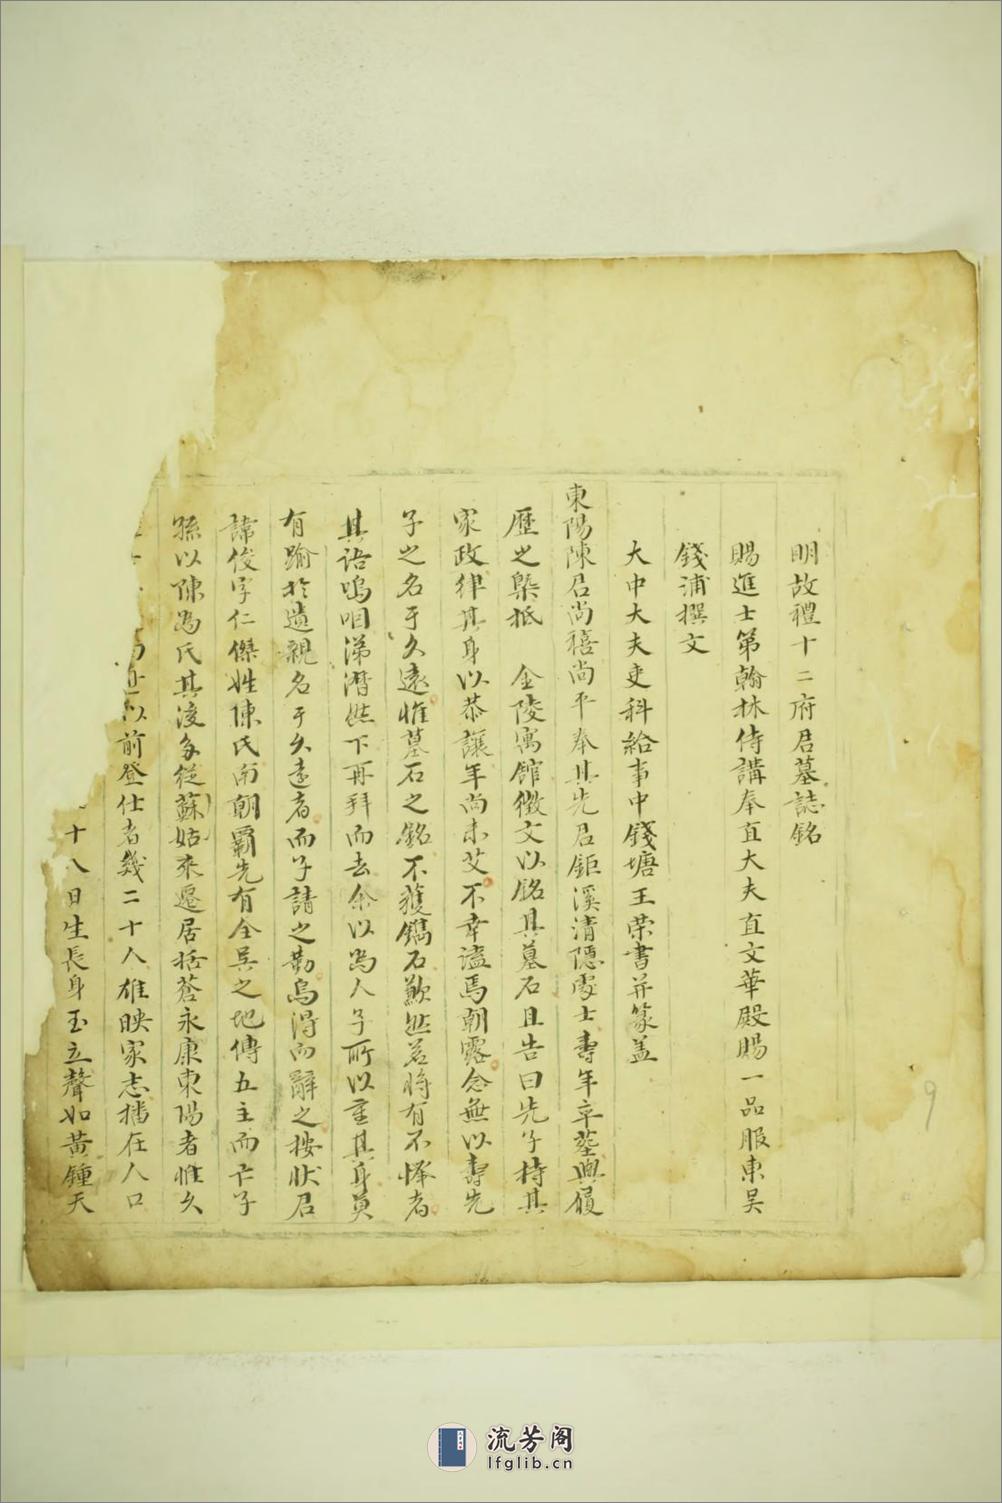 明故禮十二府君墓誌銘
賜進士第翰林侍講奉直大夫直文華殿賜一品服東吴
錢溥撰文
大中大夫吏科給事中錢塘王荣書并篆盖
東陽陳君尚禧尚平奉其先君鉅溪清隱處士壽年卒塟興履
歷之槩抵 金陵寓館徵文以銘其墓石且告曰先子持其
家政律其身以恭讓年尚未艾不幸溘焉朝露念無以壽先
子之名于久遠惟墓石之銘不獲鐫石歉然若將有不懌者
其語嗚咽涕潸然下再拜而去余以為人子所以重其身莫
有踰於遺親名于久遠者而子請之勤烏得而辭之按狀君
諱俊字仁傑姓陳氏南朝霸先有全吴之地傳五主而亡子
孫以陳為氏其後多從蘇姑來遷居括蒼永康東陽者惟久
以前登仕者幾二十人雄映家志播在人口
十八日生長身玉立聲如黃鍾天
9
流芳阁
lfglib.cn